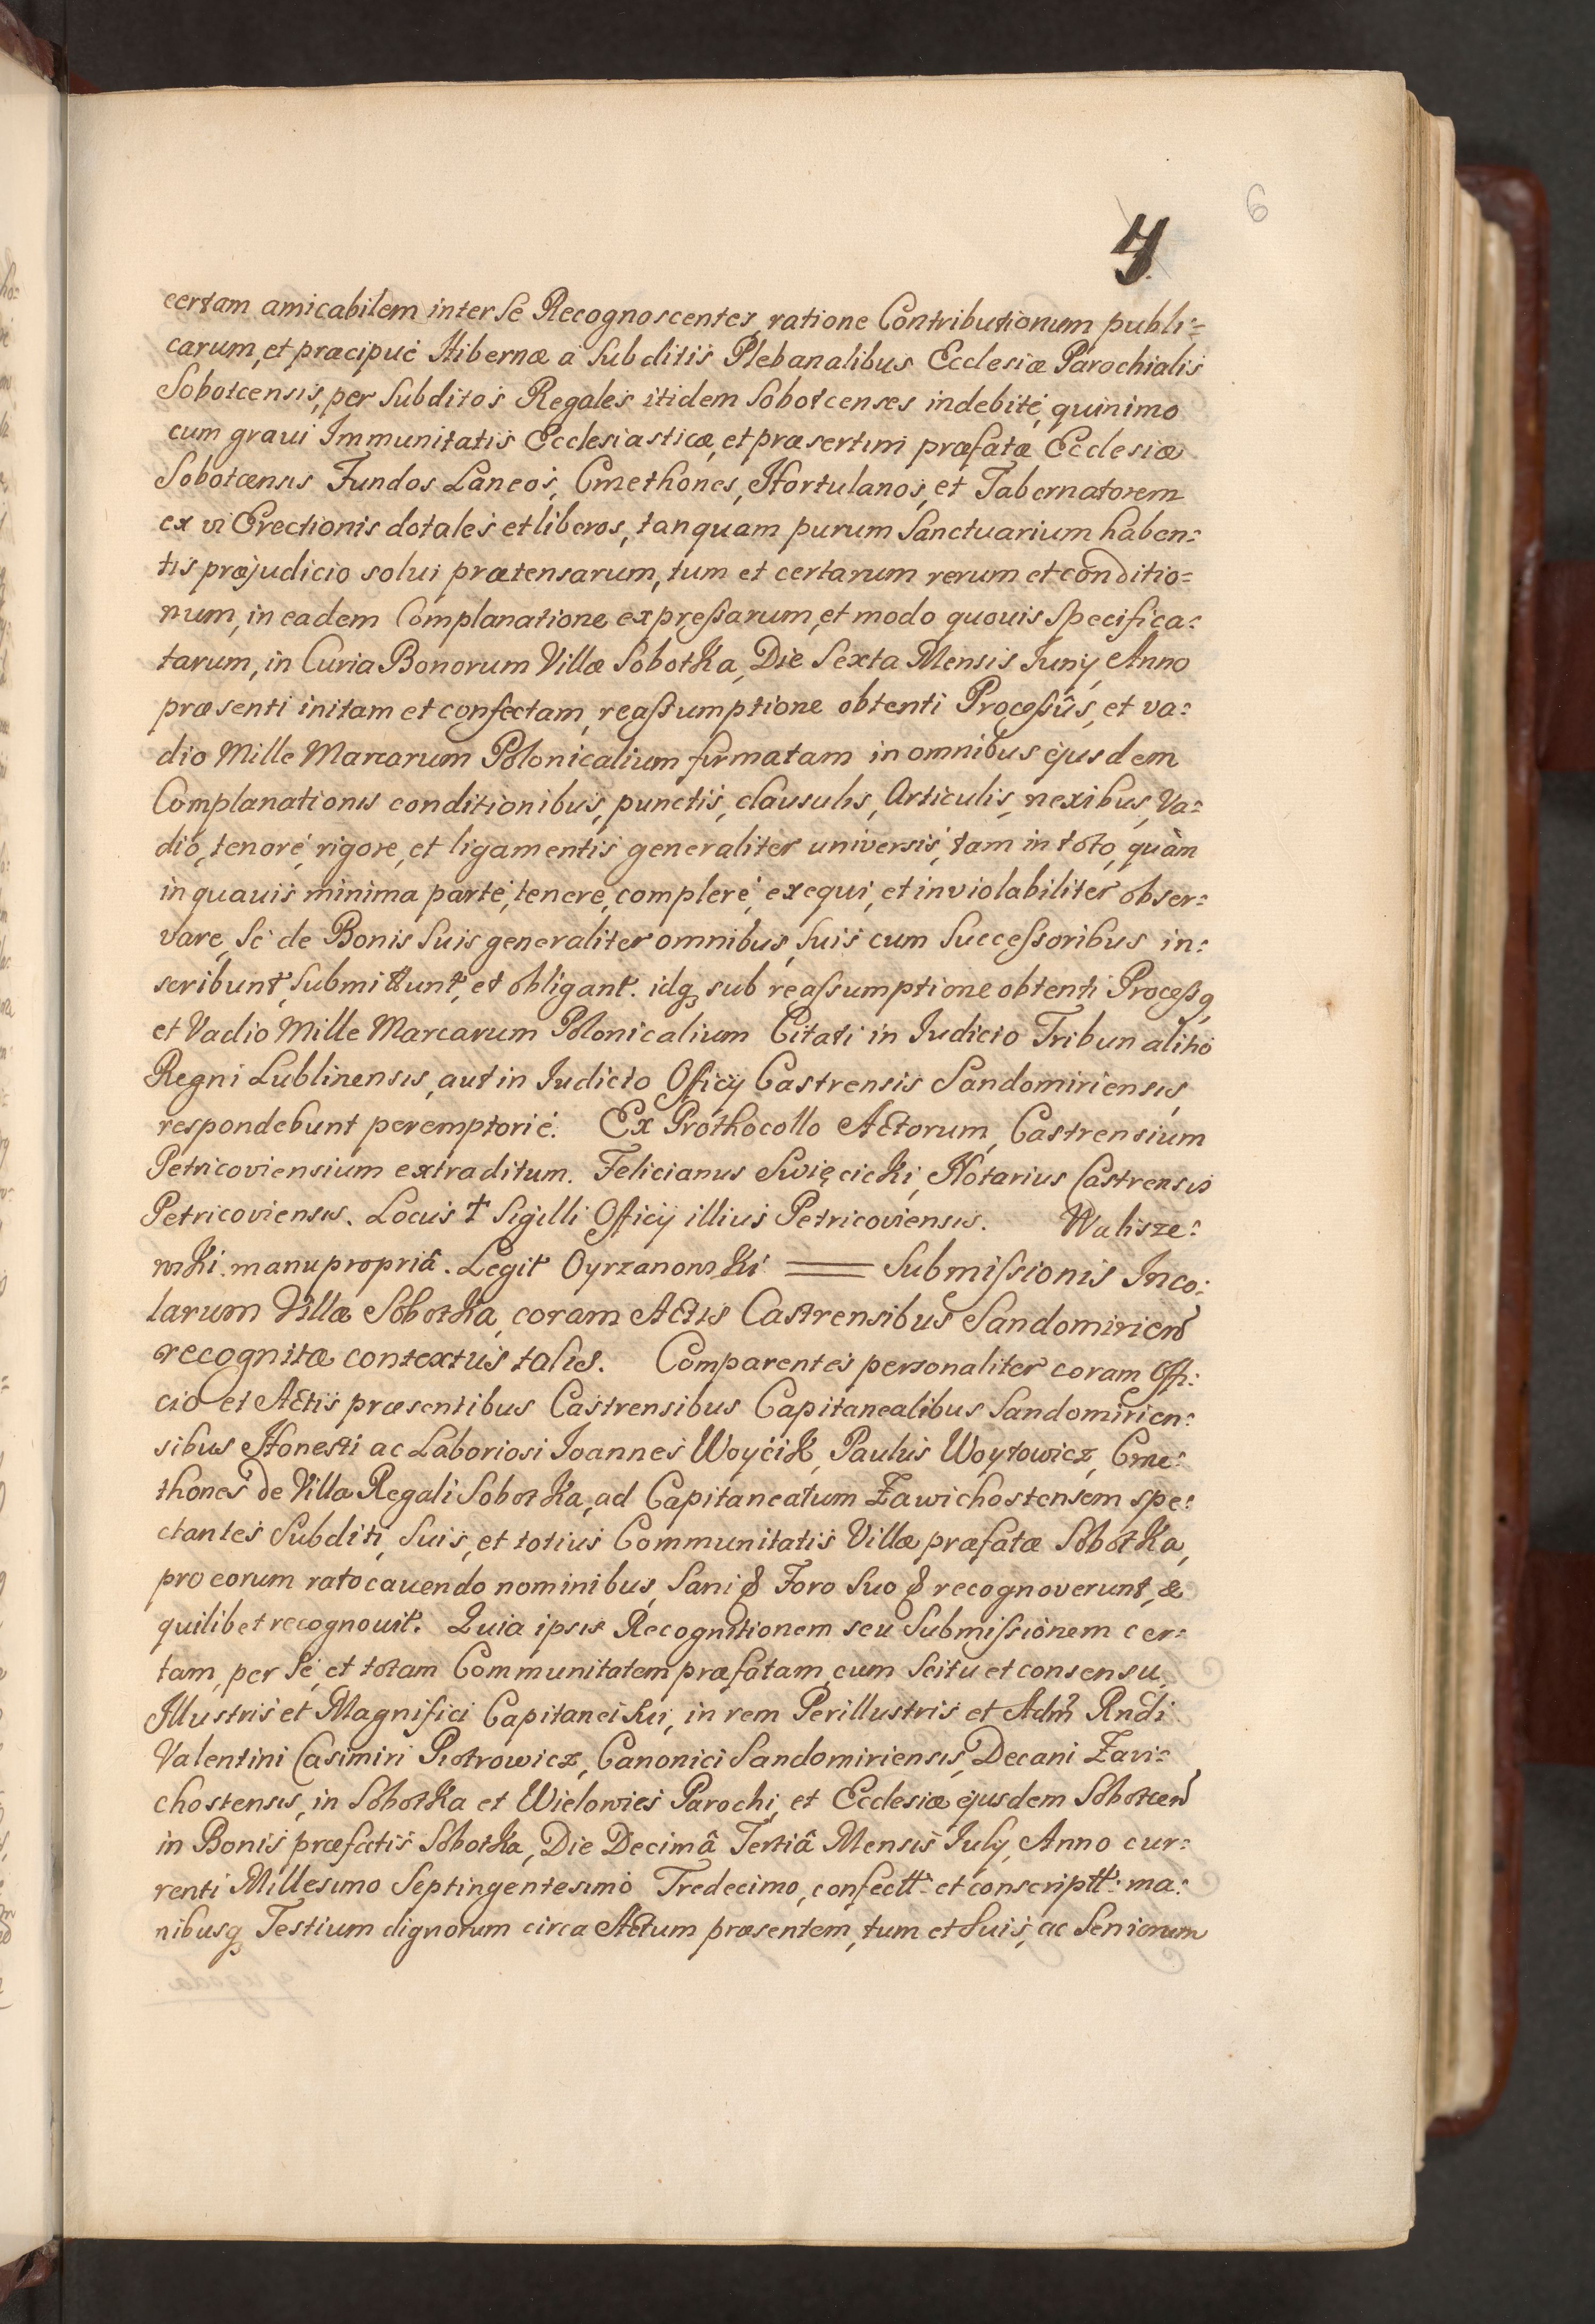 6
4.
certam amicabilem inter Se Recognoscentes, ratione Contributionum publi=
carum, et præcipuè Hibernæ à Subditis Plebanalibus Ecclesiæ Parochialis
Sobotcensis, per Subditos Regales itidem Sobotcenses indebitè, quinimo
cum graui Immunitatis Ecclesiasticæ, et præsertim præfatæ Ecclesiæ
Sobotcensis Fundos Laneos, Cmethones, Hortulanos, et Tabernatorem
ex vi Erectionis dotales et liberos, tanquam purum Sanctuarium haben=
tis præjudicio solui prætensarum, tum et certarum rerum et conditio=
num, in eadem Complanatione expreſsarum, et modo quouis Specifica=
tarum, in Curia Bonorum Villæ Sobotka, Die Sexta Mensis Iunij, Anno
præsenti initam et confectam, reaſsumptione obtenti Proceſsûs, et va=
dio Mille Marcarum Polonicalium firmatam in omnibus ejusdem
Complanationis conditionibus, punctis, clausulis, Articulis, nexibus, Va=
dio, tenore, rigore, et ligamentis generaliter universis, tam in toto, quàm
in quauis minima parte, tenere, complere, exequi, et inviolabiliter obser=
vare, Se de Bonis Suis generaliter omnibus, Suis cum Succeſsoribus in=
scribunt, Submittunt, et obligant. idq3 sub reaſsumptione obtenti Proceſs9,
et Vadio Mille Marcarum Polonicalium Citati in Iudicio Tribunalitio
Regni Lublinensis, aut in Iudicio Officij Castrensis Sandomiriensis,
respondebunt peremptoriè. Ex Prothocollo Actorum, Castrensium
Petricoviensium extraditum. Felicianus Swięcicki, Notarius Castrensis
Petricoviensis. Locus † Sigilli Officij illius Petricoviensis. Walisze=
wski. manu propriâ. Legit Oyrzanowski == Submiſsionis Inco=
larum Villæ Sobotka, coram Actis Castrensibus Sandomirien
recognitæ contextus talis. Comparentes personaliter coram Offi=
cio et Actis præsentibus Castrensibus Capitanealibus Sandomirien=
sibus Honesti ac Laboriosi Ioannes Woyćik, Paulus Woytowicz, Cme=
thones de Villa Regali Sobotka, ad Capitaneatum Zawichostensem spe=
ctantes Subditi, Suis, et totius Communitatis Villæ præfatæ Sobotka,
pro eorum rato cauendo nominibus, Sani & Foro Suo & recognoverunt, &
quilibet recognouit. Quia ipsis Recognitionem seu Submiſsionem cer=
tam, per Se, et totam Communitatem præfatam, cum Scitu et consensu
Illustris et Magnifici Capitanei Sui, in rem Perillustris et Adm Rndi
Valentini Casimiri Piotrowicz, Canonici Sandomiriensis, Decani Zavi=
chostensis, in Sobotka et Wielowieś Parochi, et Ecclesiæ ejusdem Sobotcen
in Bonis præfatis Sobotka, Die Decimâ Tertiâ Mensis Iulij, Anno cur=
renti Millesimo Septingentesimo Tredecimo, confectt: et conscriptt: ma=
nibusq3 Testium dignorum circa Actum præsentem, tum et Suis, ac Seniorum